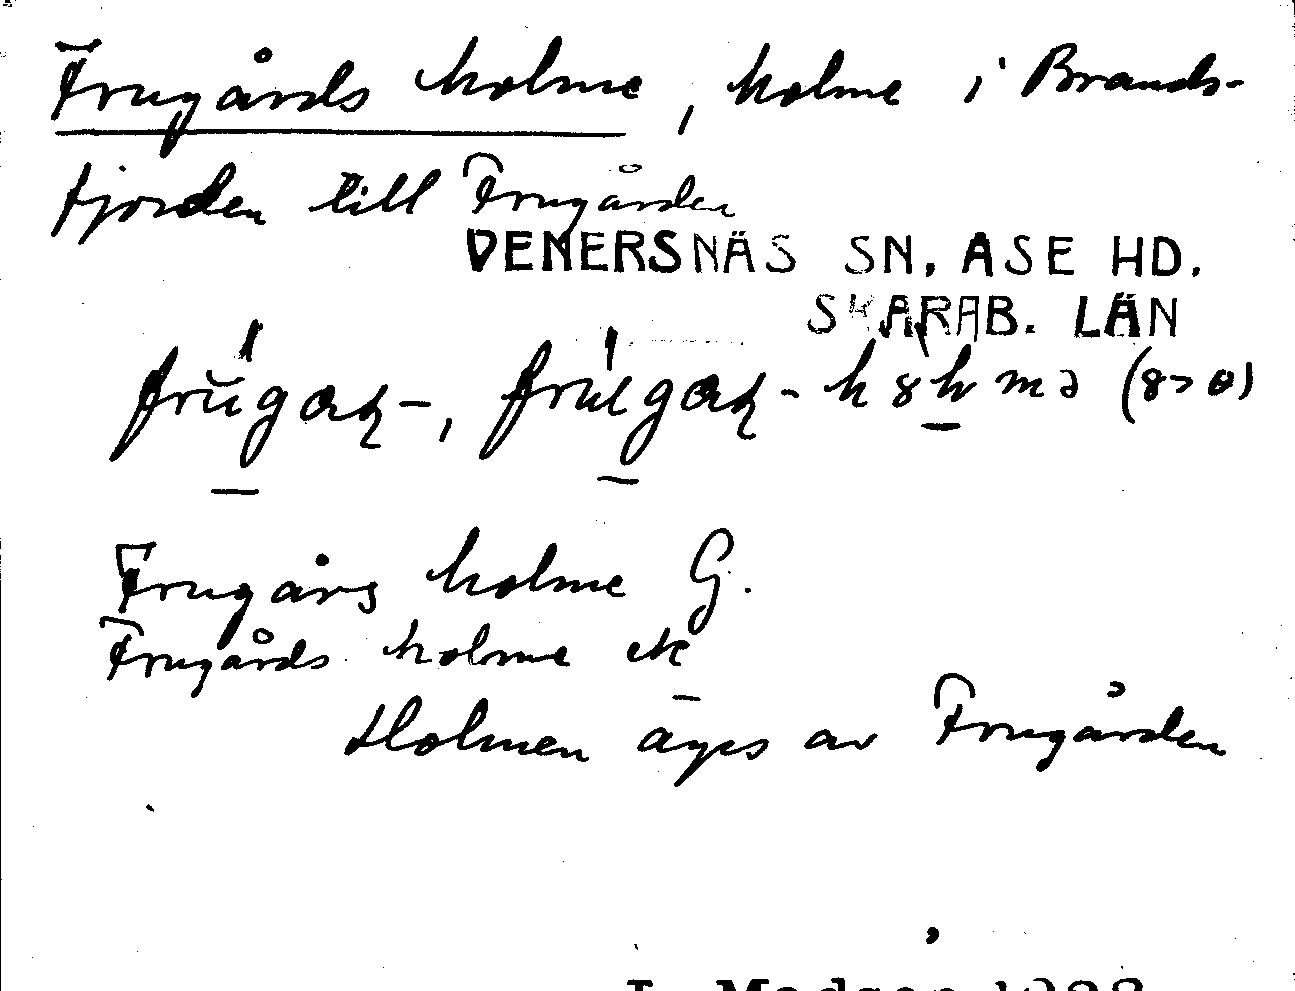 Frugårds holme, holme i Brands-
fjorden till Frugården
VENERSNÄS SN, ASE HD.
SKARAB. LÄN
Frugårs holme G.
Frugårds holme ek
Holmen äges av Frugården